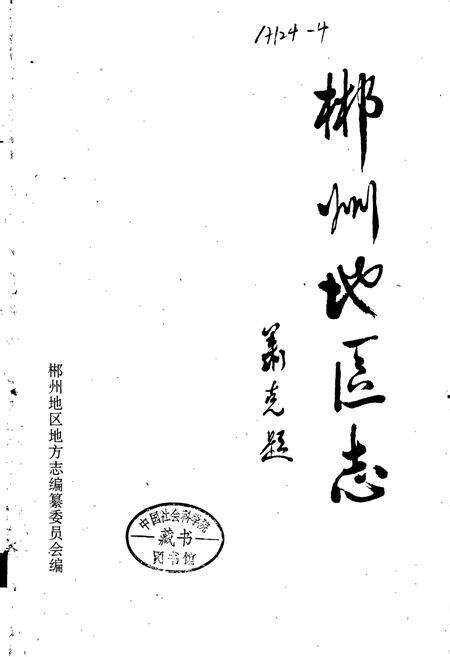 17124-4
郴州地区志
萧克题
郴州地区地方志编纂委员会编
中国社会科学院
藏书
图书馆